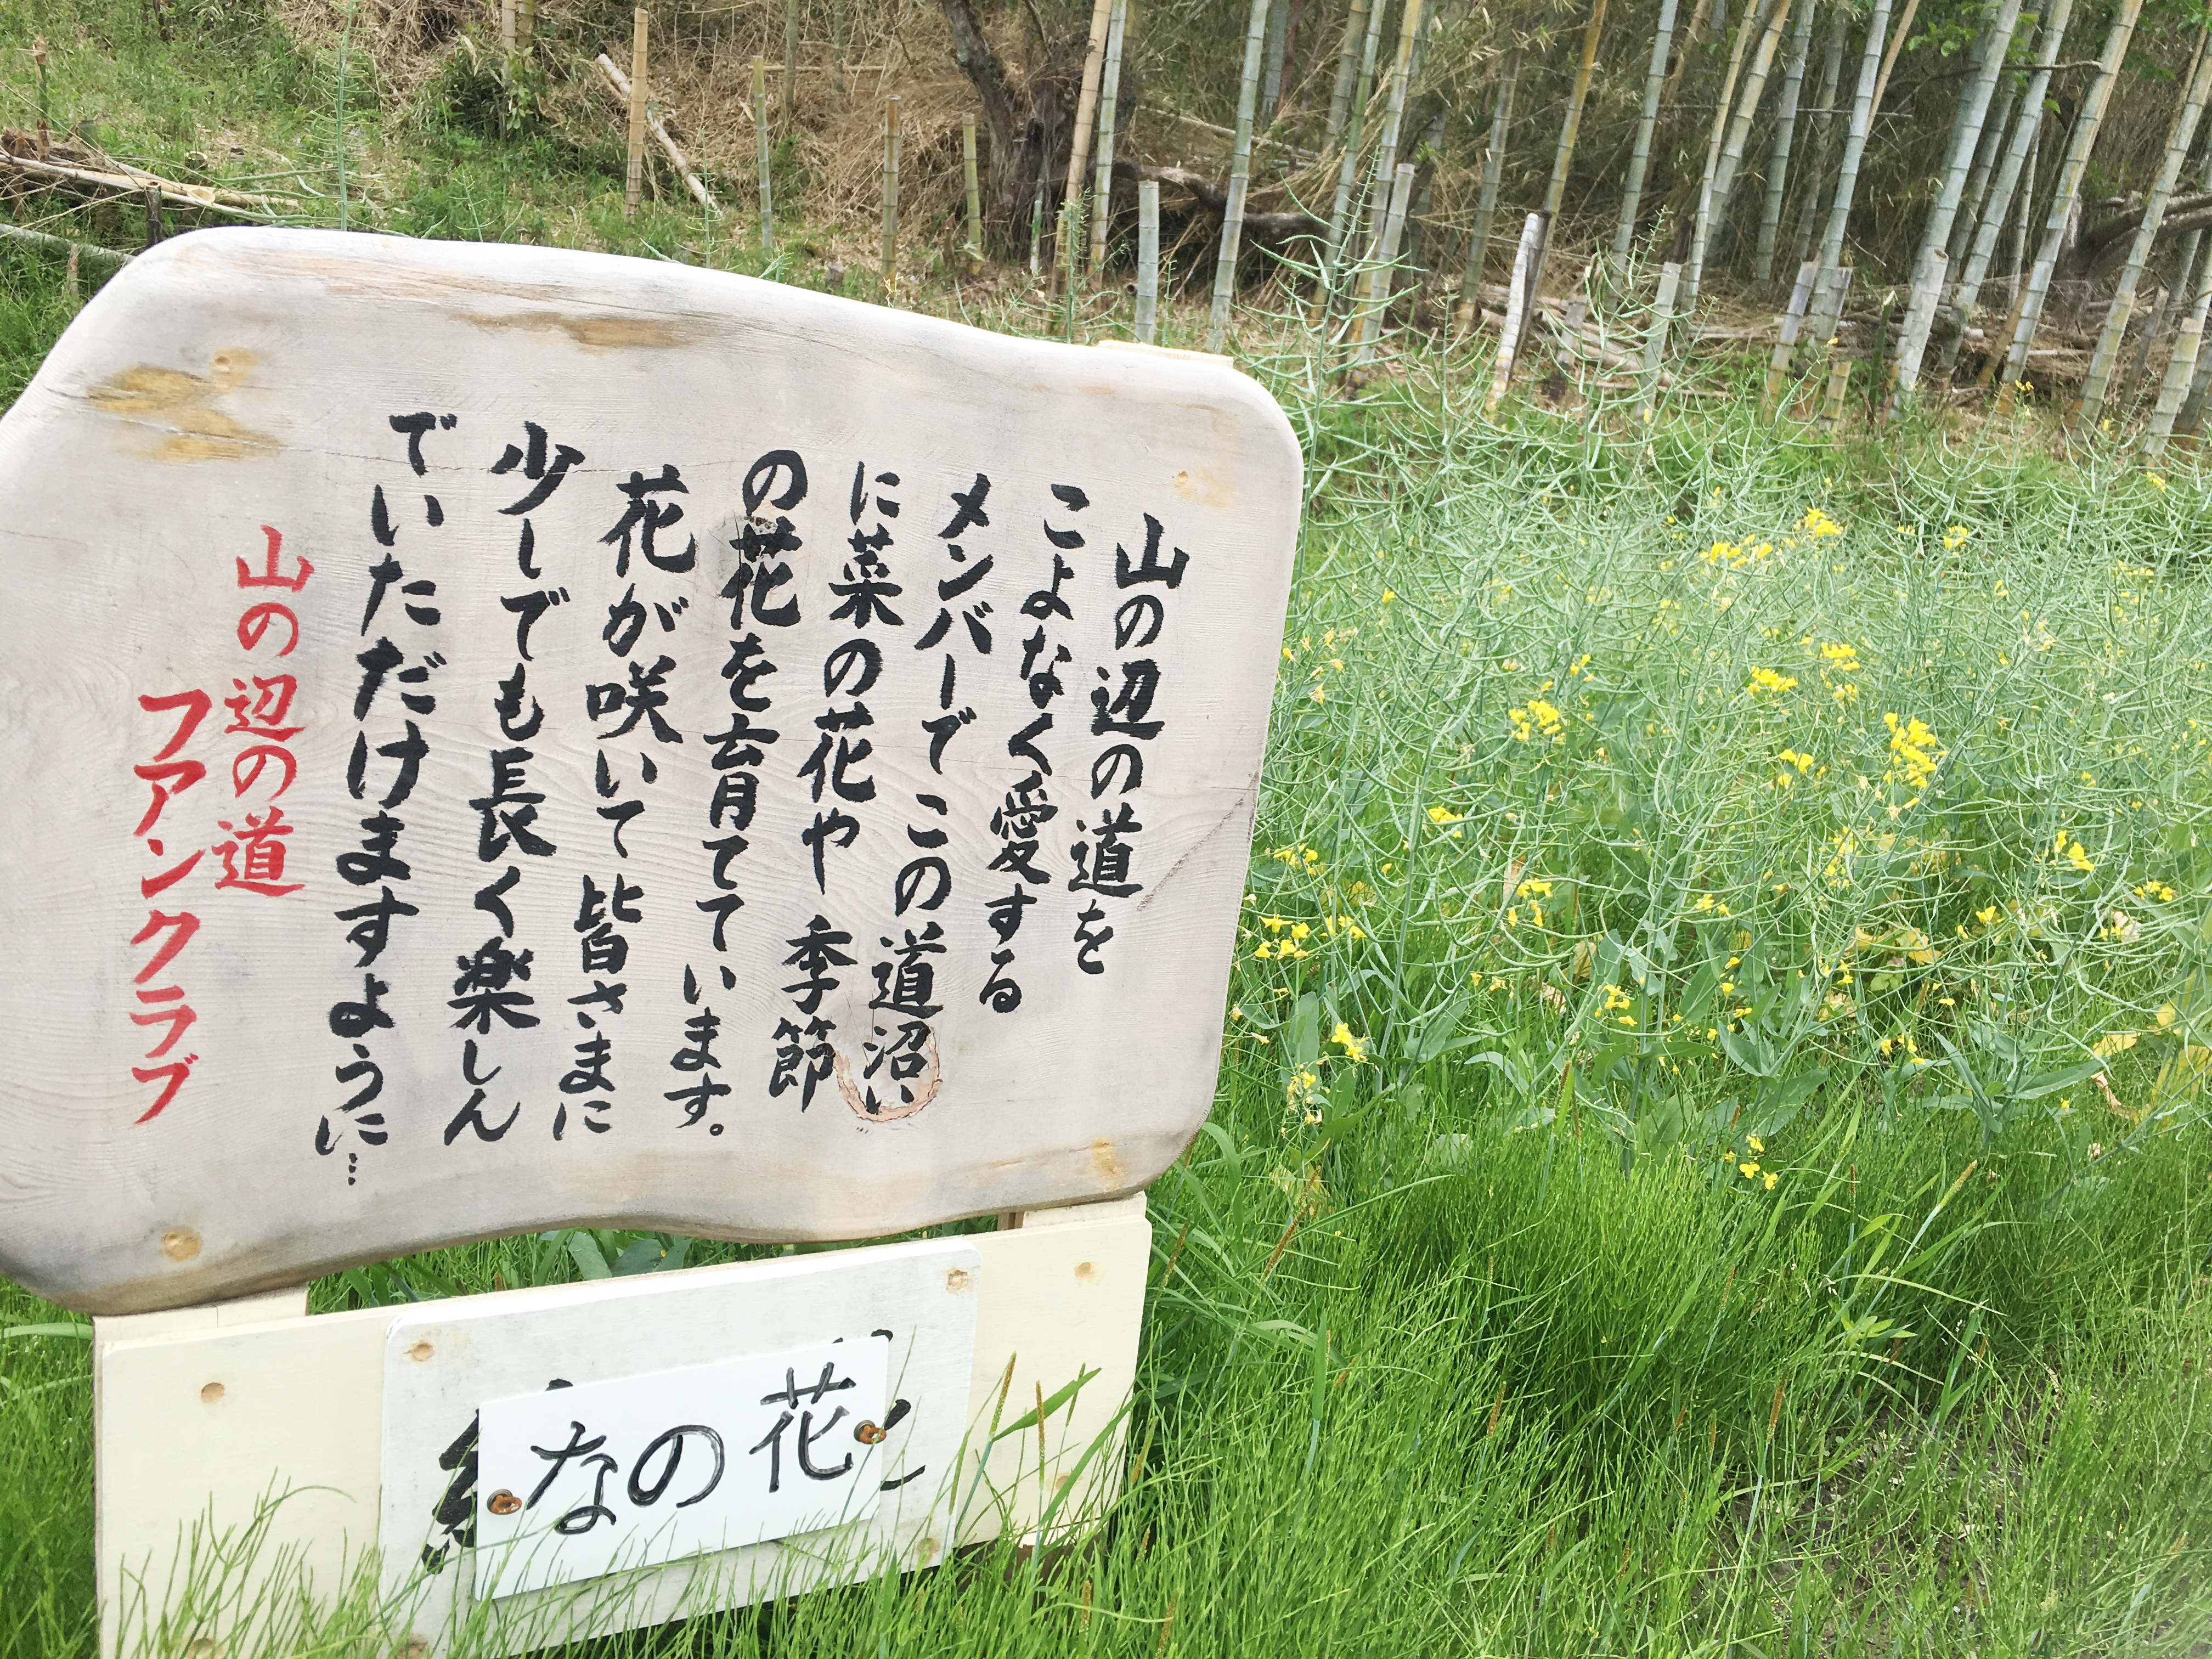 山の辺の道を
こよなく愛する
メンバーでこの道沿い
に菜の花や季節
の花を育てています。
花が咲いて皆さまに
少しでも長く楽しん
でいただけますように…
山の辺の道
フアンクラブ
なの花